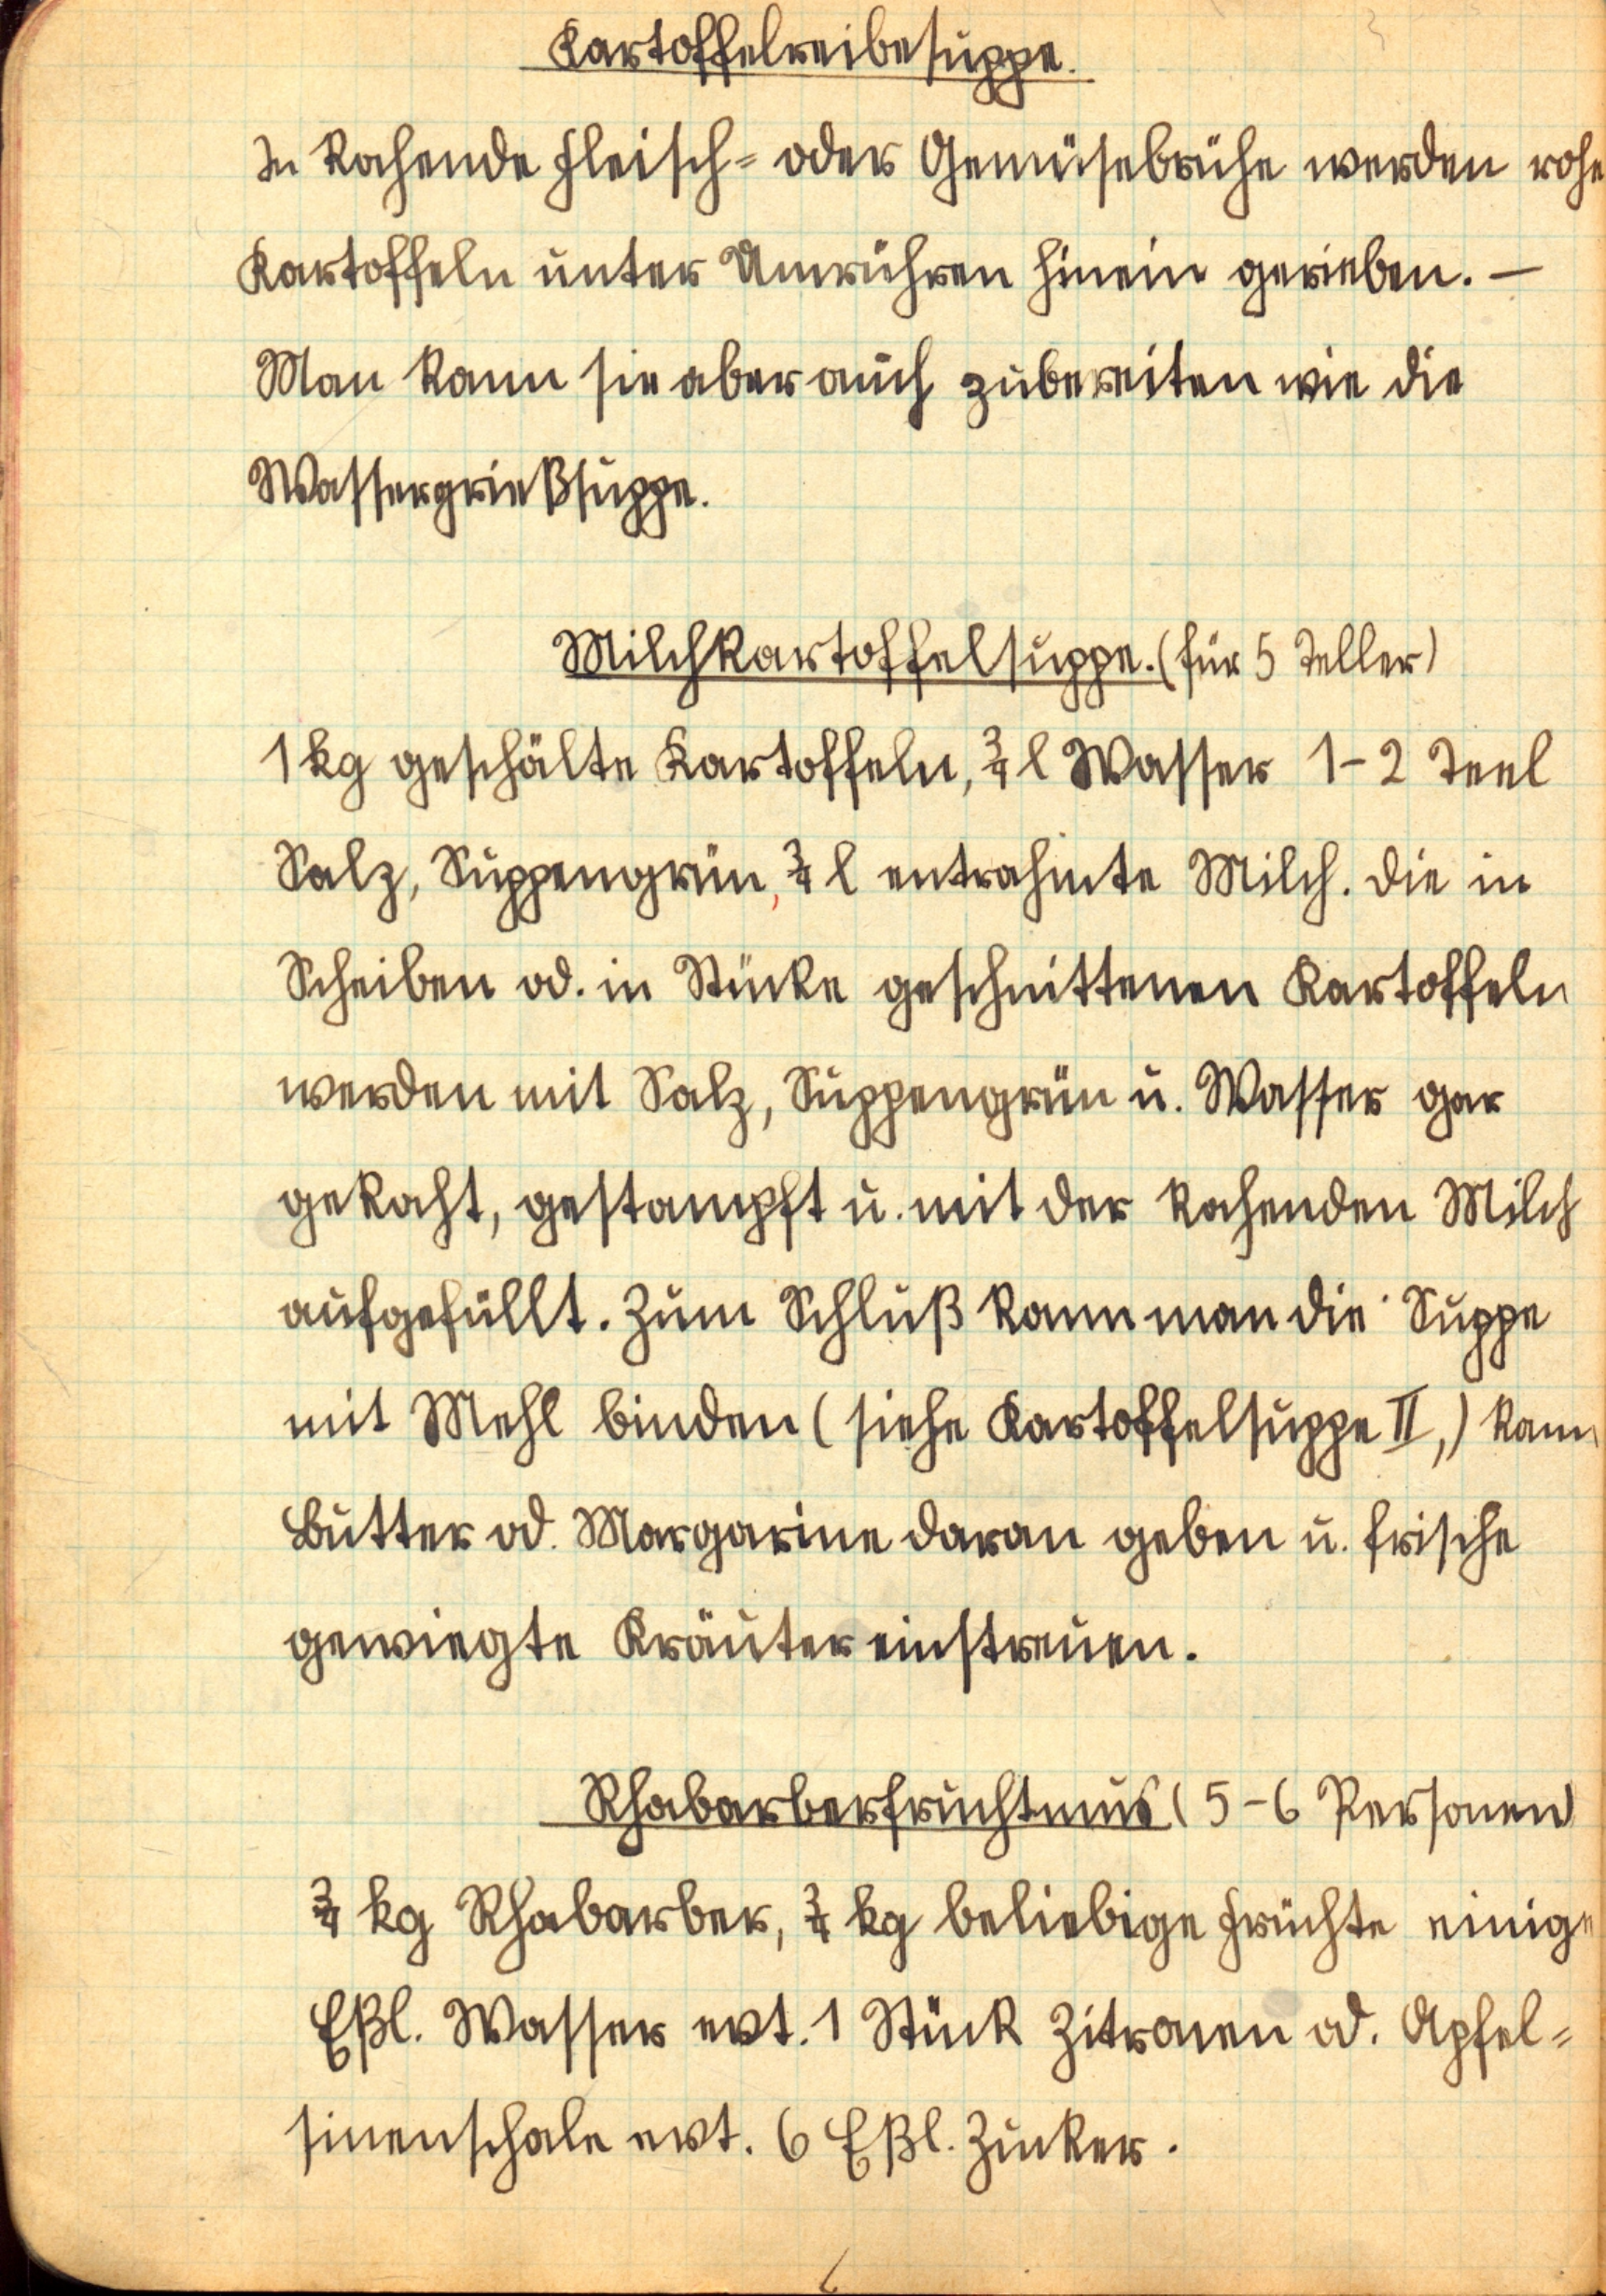 Kartoffelreibesuppe.
In kochende Fleisch= oder Gemüsebrühe werden rohe
Kartoffeln unter Umrühren hinein gerieben. —
Man kann sie aber auch zubereiten wie die
Wassergrießsuppe.
Milchkartoffelsuppe. (für 5 Teller)
1 kg geschälte Kartoffeln, ¾ l Wasser 1-2 Teel
Salz, Suppengrün, ¾ l entrahmte Milch. Die in
Scheiben od. in Stücke geschnittenen Kartoffeln
werden mit Salz, Suppengrün u. Wasser gar
gekocht, gestampft u. mit der kochenden Milch
aufgefüllt. Zum Schluß kann man die Suppe
mit Mehl binden (siehe Kartoffelsuppe II,) kann
Butter od. Margarine daran geben u. frische
gewiegte Kräuter einstreuen.
Rhabarberfruchtmus (5-6 Personen)
¾ kg Rhabarber, ¾ kg beliebige Früchte einige
Eßl. Wasser evt. 1 Stück Zitronen od. Apfel=
sinenschale evt. 6 Eßl. Zucker.